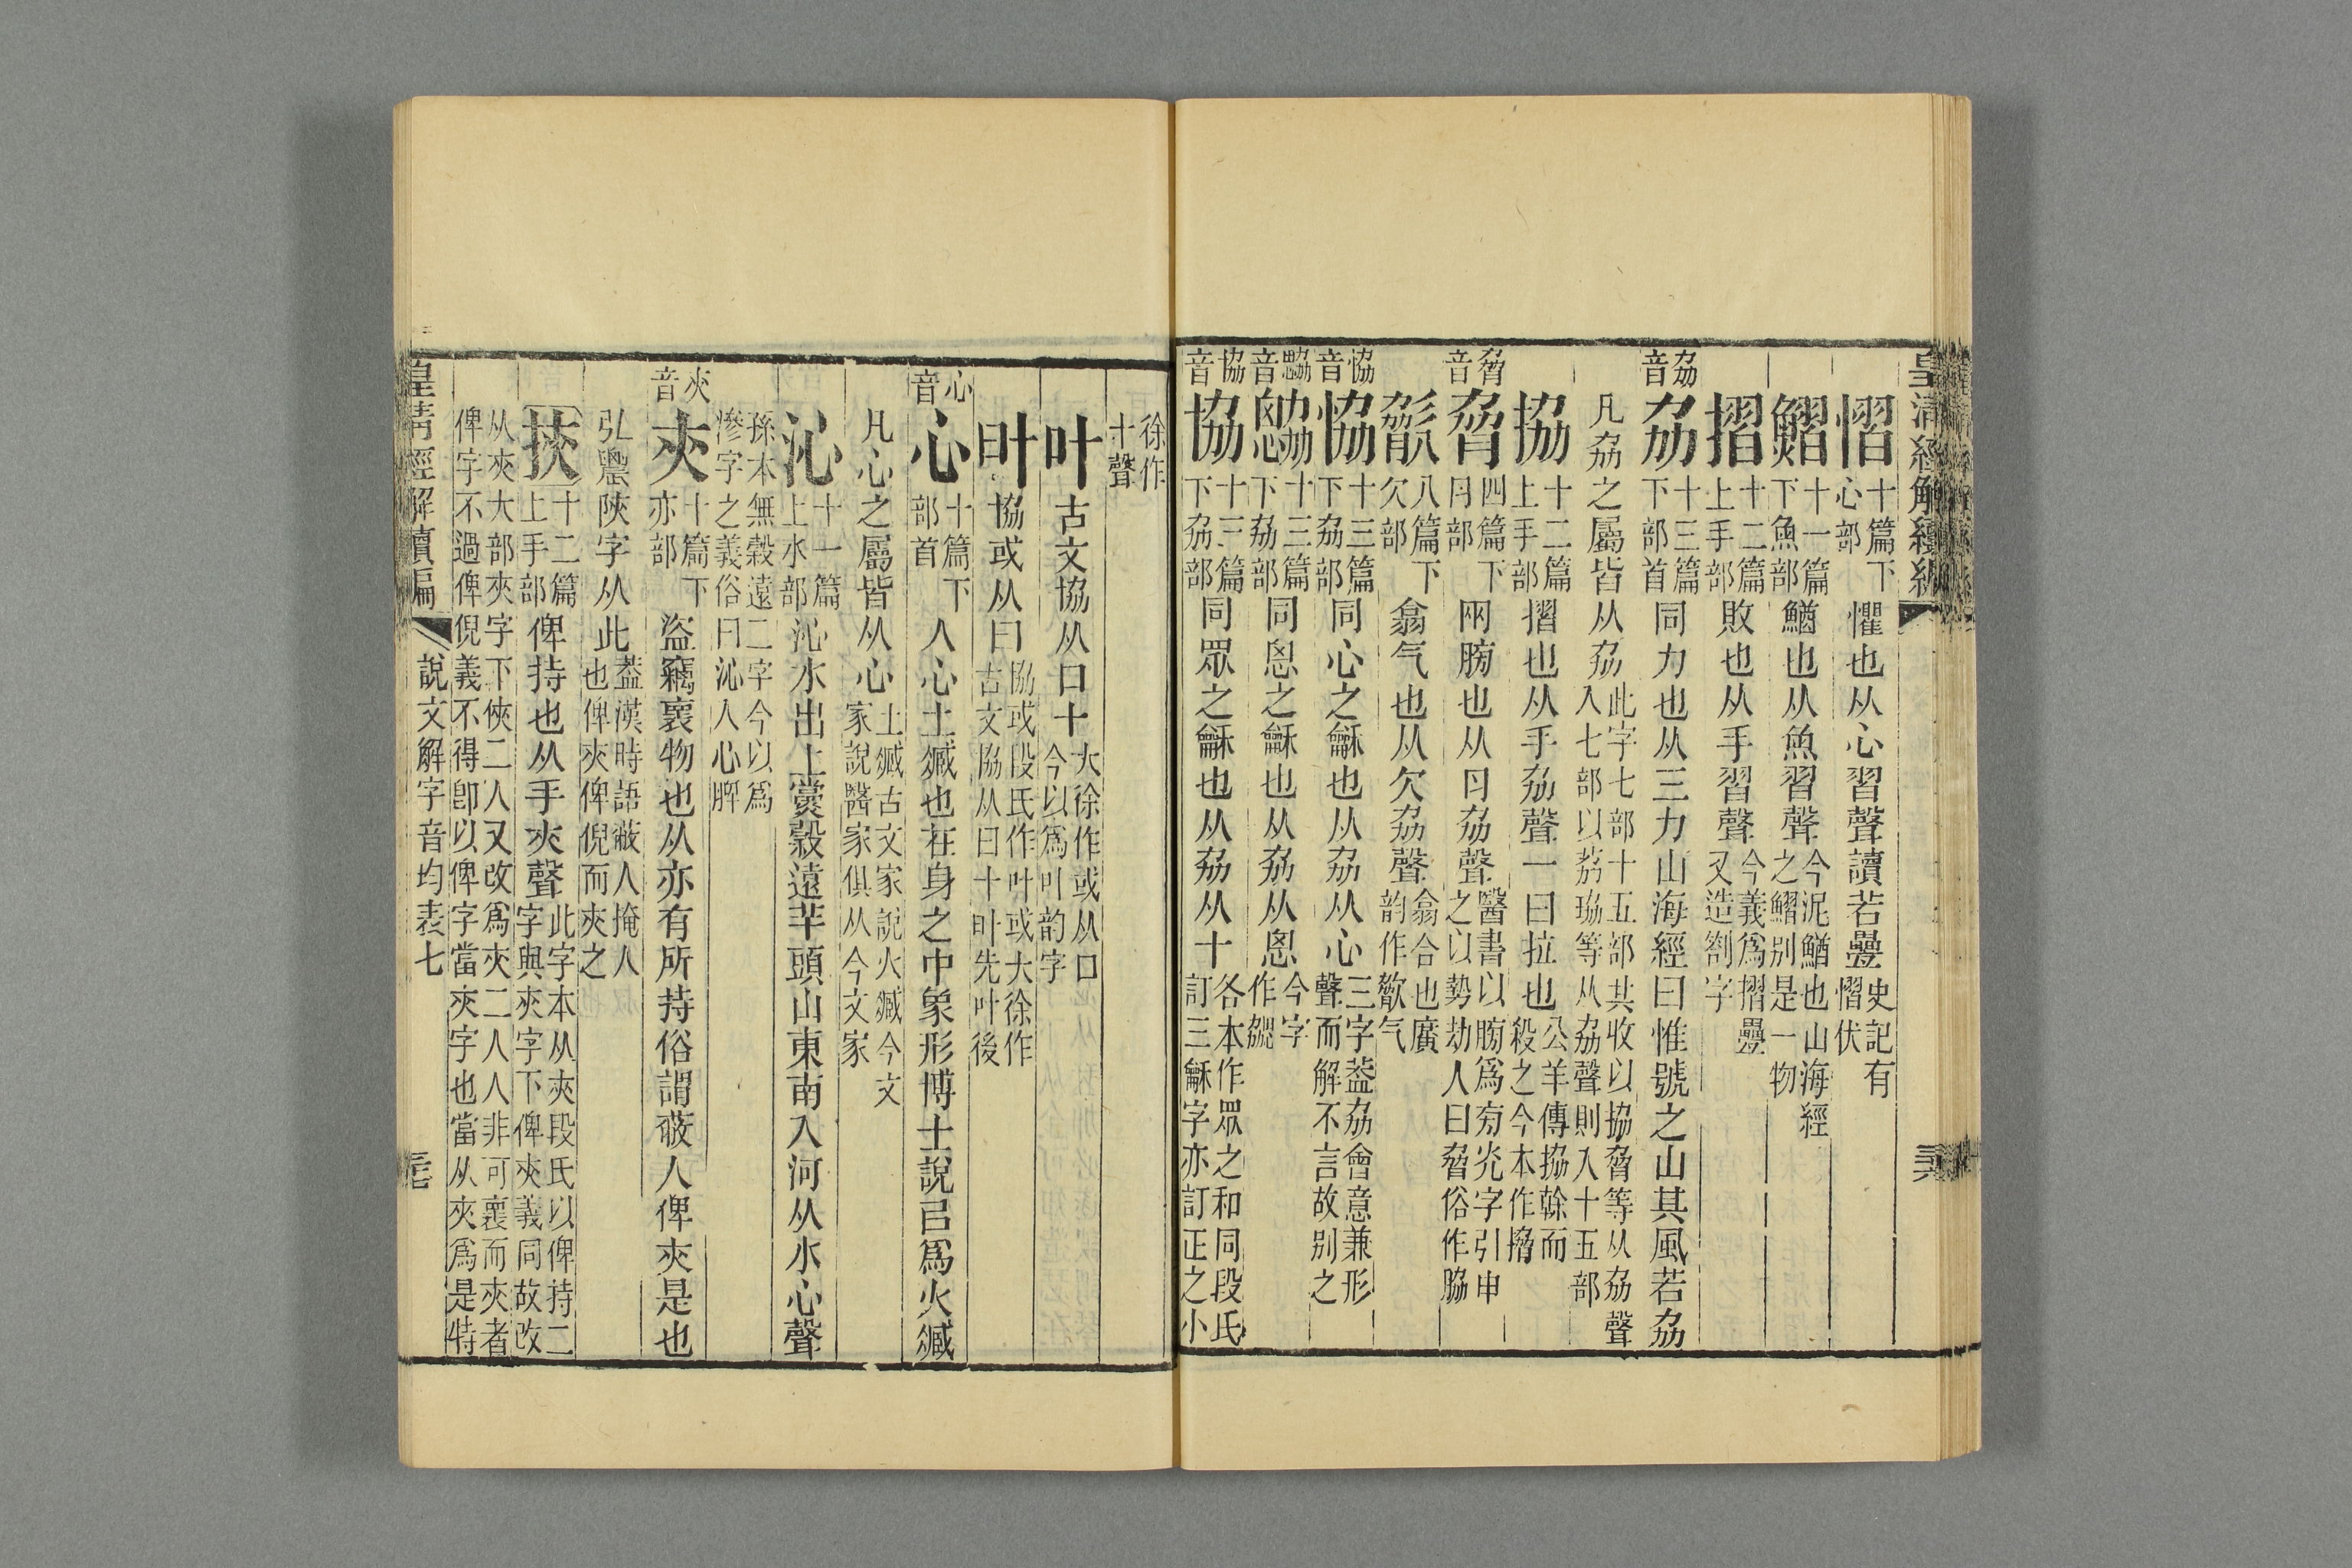 皇清經解續編
慴十篇下心部懼也从心習聲讀若疊史記有慴伏
鰼十一篇下魚部鰌也从魚習聲今泥鰌也山海經之鰼别是一物
摺十二篇上手部敗也从手習聲今義爲摺疊又造劄字
劦音劦十三篇下部首同力也从三力山海經曰惟號之山其風若劦
凡劦之屬皆从劦此字七部十五部共收以協脅等从劦聲入七部以荔珕等从劦聲則入十五部
拹十二篇上手部摺也从手劦聲一曰拉也公羊傳拹幹而殺之今本作搚
脅音脅四篇下肉部兩膀也从肉劦聲醫書以膀爲旁光字引申之以勢劫人曰脅俗作脇
歙八篇下欠部翕气也从欠劦聲翕合也廣韵作歙气
恊音恊十三篇下劦部同心之龢也从劦从心三字葢劦會意兼形聲而解不言故别之
勰音勰十三篇下劦部同思之龢也从劦从思今字作勰
協音協十三篇下劦部同眾之龢也从劦从十各本作眾之和同段氏訂三龢字亦訂正之小
徐作十聲
叶古文協从口十大徐作或从口今以爲叶韵字
旪協或从曰協或段氏作叶或大徐作古文協从曰十旪先叶後
心音心十篇下部首人心土臧也在身之中象形博士說㠯爲火臧
凡心之屬皆从心土臧古文家說火臧今文家說醫家俱从今文家
沁十一篇上水部沁水出上黨穀遠羊頭山東南入河从水心聲
孫本無穀遠二字今以爲滲字之義俗曰沁人心脾
夾音夾十篇下亦部盜竊褱物也从亦有所持俗謂蔽人俾夾是也
弘農陝字从此葢漢時語蔽人掩人也俾夾俾倪而夾之
挾十二篇上手部俾持也从手夾聲此字本从夾段氏以俾持二字與夾字下俾夾義同故改
从夾大部夾字下俠二人又改爲夾二人人非可褱而夾者俾字不過俾倪義不得卽以俾字當夾字也當从夾爲是特
皇清經解續編
說文解字音均表七